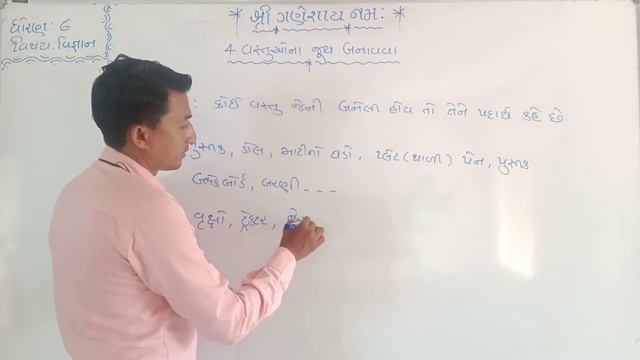 * શ્રી ગણેશાય નમઃ *
ધોરણ: 6
વિષય: વિજ્ઞાન
4 વસ્તુઓના જૂથ બનાવવા
: કોઈ વસ્તુ જેની બનેલી હોય તો તેને પદાર્થ કહે છે.
પુસ્તક, ડોલ, માટીનો ઘડો, પ્લેટ (થાળી) પેન, પુસ્તક
બ્લેકબોર્ડ, બરણી - - -
વૃક્ષો, ટ્રેક્ટર,